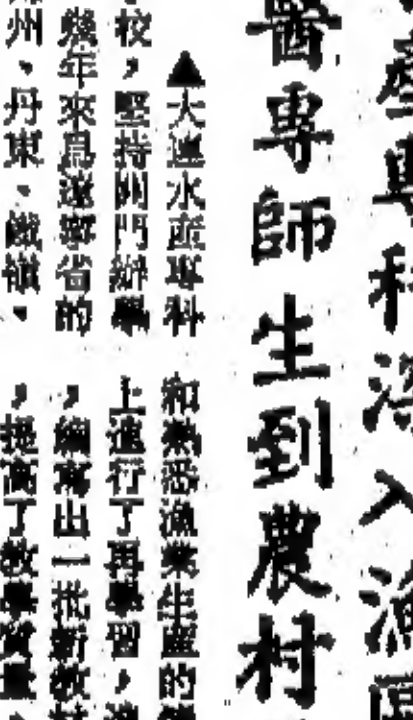 產專科深入漁區
醫專師生到農村
▲大連水產專科
校，堅持開門辦學
幾年來為遼寧省的
州、丹東、鐵嶺、
和熟悉漁業生產的
上進行了再學習，
，編寫出一批新教材
，提高了教學質量、